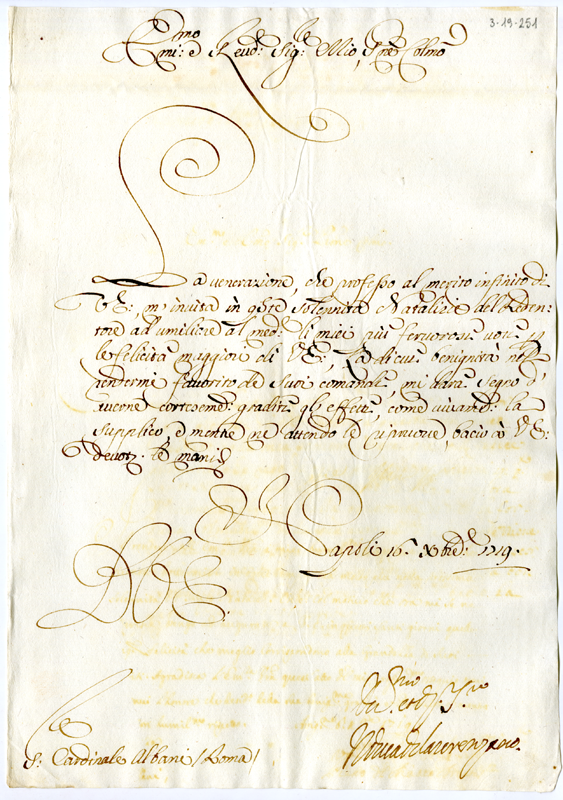 3-19-251
Emo
mi: e Reud: Sig:re Mio, Pne Colmo
La venerazione, che professo al merito infinito di
VE:, m'invita in qste solennità Natalizie del Reden-
tore ad umiliare al med: li miei più fervorosi voti p
le felicità maggiori di VE:, La di cui benignità nel
rendermi favorito de suoi comandi, mi darà segno d'
averne cortesemte: graditi gl'effetti, come vivamte: la
supplico, e mentre ne attendo le ripruove, bacio à VE:
devotte: le mani
Napoli 16. Xbre: 1719.
VE:
S: Cardinale Albani (Roma)